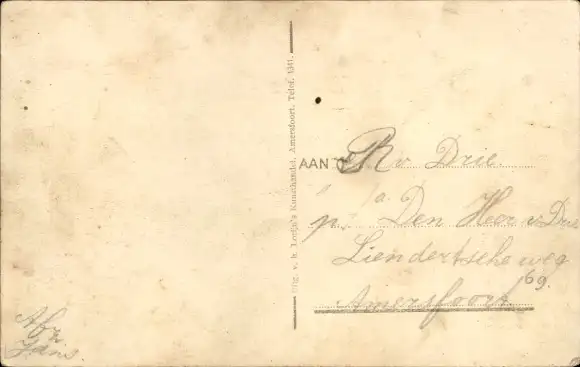 Uitg. v. h. Lentjn's Kunsthandel, Amersfoort, Telef. 1341.
AAN R v Drie
p/a Den Heer v Drie
Liendertscheweg
69.
Amersfoort
Afz
Jans.